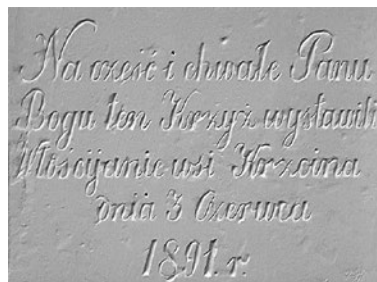 Na cześć i chwałe Panu
Bogu ten Krzyż wystawili
Włościjanie wsi Krzcina
dnia 3 Czerwca
1891. r.